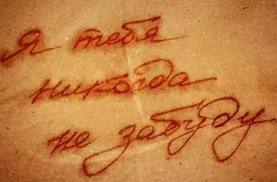 Я тебя
никогда
не забуду